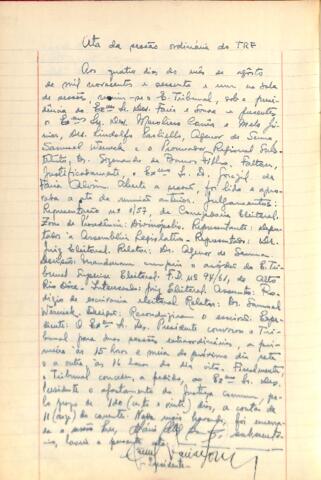 Ata da sessão ordinária do TRE
Aos quatro dias do mês de agôsto
de mil novecentos e sessenta e um, na sala
de sessões, reuniu-se o E. Tribunal, sob a presi-
dência do Exmo Sr. Des. Faria e Sousa e presentes
o Exmo Sr. Des. Merolino e Melo
Drs. Lindolfo Paoliello, Agenor de Senna
Samuel Werneck e o Procurador Regional Subs-
tituto, Dr. de Barros Filho. Faltou,
justificadamente, o Exmo Sr. D. Gonzaga de
Faria Alvim. Aberta a sessão, foi lida e apro-
vada a ata da reunião anterior. Julgamentos:
Representação nº 1/57, de Corregedoria Eleitoral.
Zona de Divinópolis. Representante: depu-
tado à Assembléia Legislativa. Representado: Dr.
Juiz Eleitoral. Relator: Dr. Agenor de Senna.
Decisão: Mandaram cumprir o acórdão do E. Tri-
bunal Superior Eleitoral. F.D. nº 94/61, de Alto
Rio Doce. Interessado: Juiz Eleitoral. Assunto: Ro-
dízio de escrivania eleitoral. Relator: Dr. Samuel
Werneck. Decisão: Reconduziram o escrivão. Expe-
diente: O Exmo Sr. Des. Presidente convocou o Tri-
bunal para duas sessões extraordinárias, a pri-
meira às 15 horas e meia do próximo dia sete
e a outra às 16 horas do dia oito. Finalmente,
o Tribunal concedeu, a pedido, ao Exmo Sr. Des.
Presidente o afastamento da Justiça Comum, pe-
lo prazo de 120 (cento e vinte) dias, a contar de
11 (onze) do corrente. Nada mais havendo, foi encerra-
da a sessão. Eu,
lavrei a presente ata.
Presidente